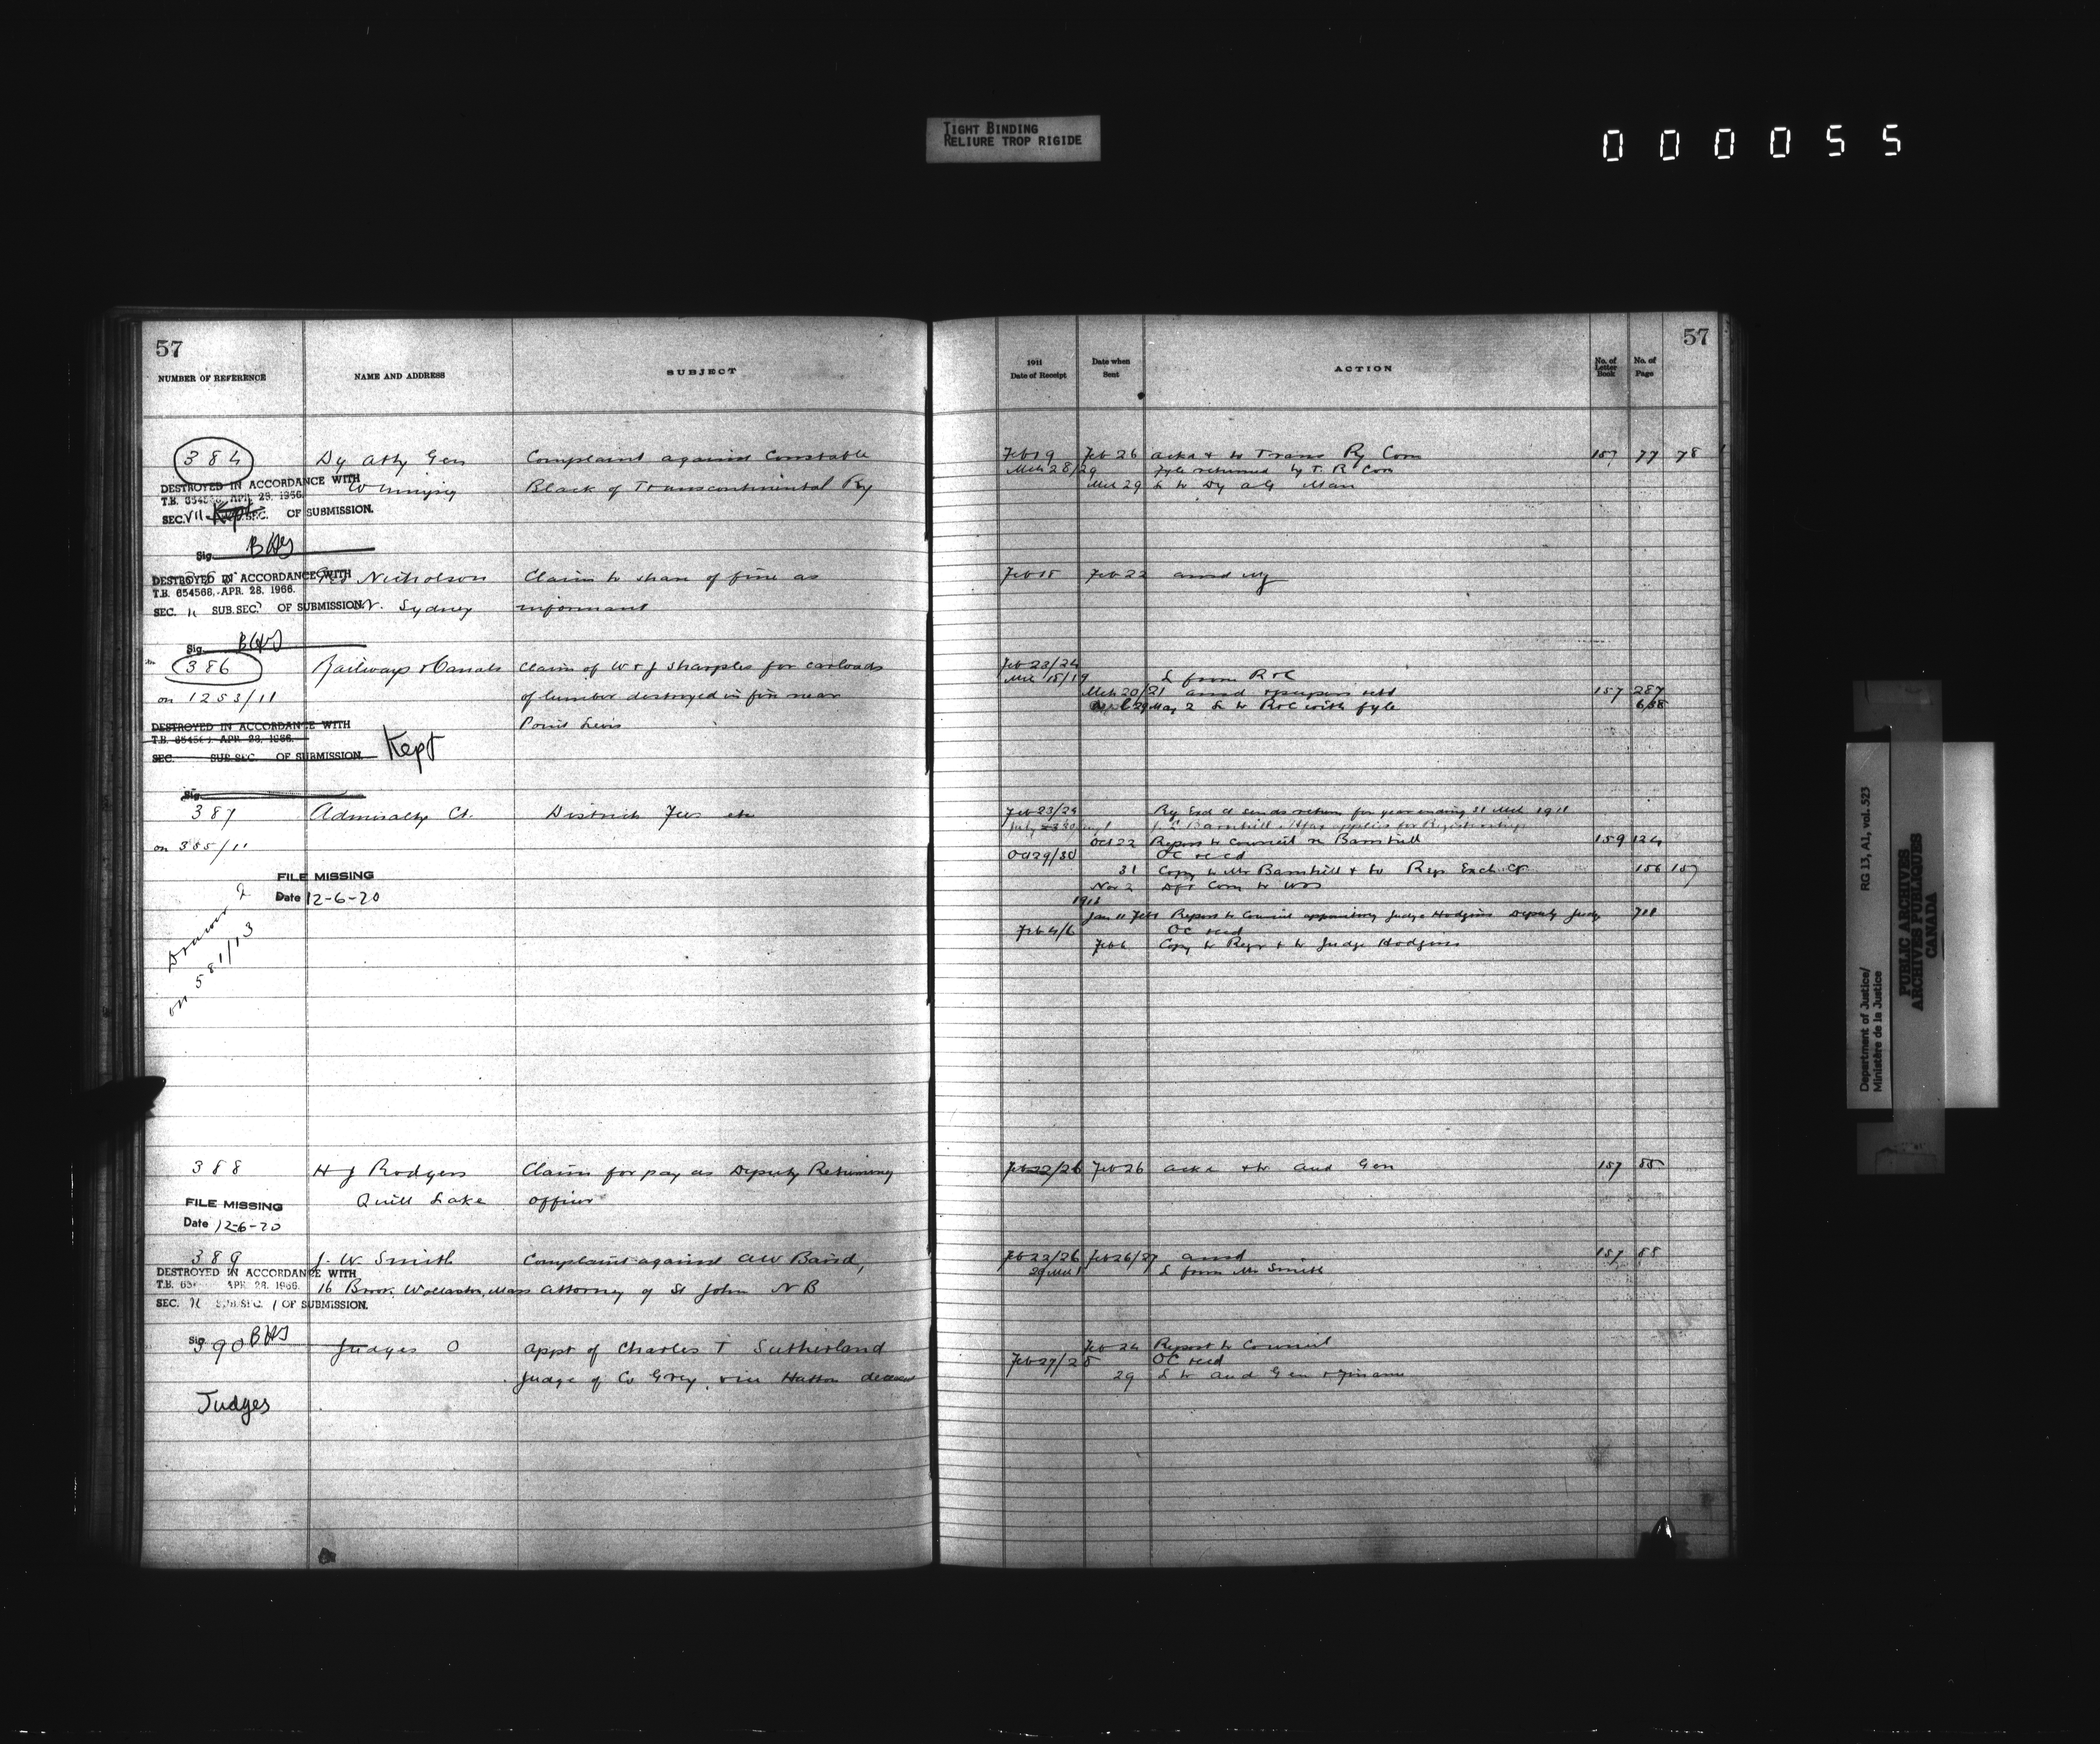 TIGHT BINDING
RELIURE TROP RIGIDE
000055
57
NUMBER OF REFERENCE NAME AND ADDRESS SUBJECT
384 Dy Atty Gen Complaint against Constable
DESTROYED IN ACCORDANCE WITH
Winnipeg Black of Transcontinental Ry
T.B. 654568, APR. 28, 1966.
SEC. VII Kept SUB.SEC. OF SUBMISSION.
Sig.
DESTROYED IN ACCORDANCE WITH
Nicholson Claim to share of fine as
T.B. 654568, APR. 28, 1966.
SEC. SUB.SEC. OF SUBMISSION.
N. Sydney informant
Sig.
386 Railways & Canals Claim of W & J Sharples for carloads
on 1253/11 of lumber destroyed in fire near
DESTROYED IN ACCORDANCE WITH
Point Levis
T.B. 654568, APR. 28, 1966.
SEC. SUB.SEC. OF SUBMISSION.
Kept
Sig.
387 Admiralty Ct. District Fees etc
on 385/11
FILE MISSING
Date 12-6-20
Drawer 2
on 581/13
388 H J Rodgers Claim for pay as Deputy Returning
Quill Lake Officer
FILE MISSING
Date 12-6-20
389 J. W. Smith Complaint against AW Baird,
DESTROYED IN ACCORDANCE WITH
T.B. APR. 28, 1966.
16 Wollaston, Mass Attorney of St John N B
SEC. SUB.SEC. 1 OF SUBMISSION.
Sig.
390 Judges O Appt of Charles T Sutherland
Judge of Co Grey, vice Hatton deceased
Judges
57
1911
Date of Receipt
Date when
Sent
ACTION
No. of
Letter
Book
No. of
Page
Feb 19 Feb 26 ackd & to Trans Ry Com 157 77 78
Mch 28/29 Fyle returned by T. R Com
Mch 29 L to Dy AG Man
Feb 15 Feb 22 ansd
Feb 23/24
Mch 18/19 L from R & C
Mch 20/21 ansd & papers retd 157 287
May 2 L to R & C with fyle 658
Feb 23/24 Rg Exch Ct sends return for year ending 31 Mch 1911
Oct 22 Report to Council re Barnhill 159 124
Oct 29/30 OC recd
31 Copy to Mr Barnhill & to Regr Exch Ct 156 157
Nov 2
1913
Report to Council appointing Judge Hodgins Deputy Judge 711
Feb 4/6 OC recd
Feb 6 Copy to Regr & to Judge Hodgins
Feb 22/26 Feb 26 ackd & to Aud Gen 157 88
Feb 23/26 Feb 26/27 ansd 157 88
L from Mr Smith
Feb 24 Report to Council
Feb 27/28 OC recd
29 L to Aud Gen & Finance
Department of Justice/
Ministère de la Justice
RG 13, A1, vol. 523
PUBLIC ARCHIVES
ARCHIVES PUBLIQUES
CANADA